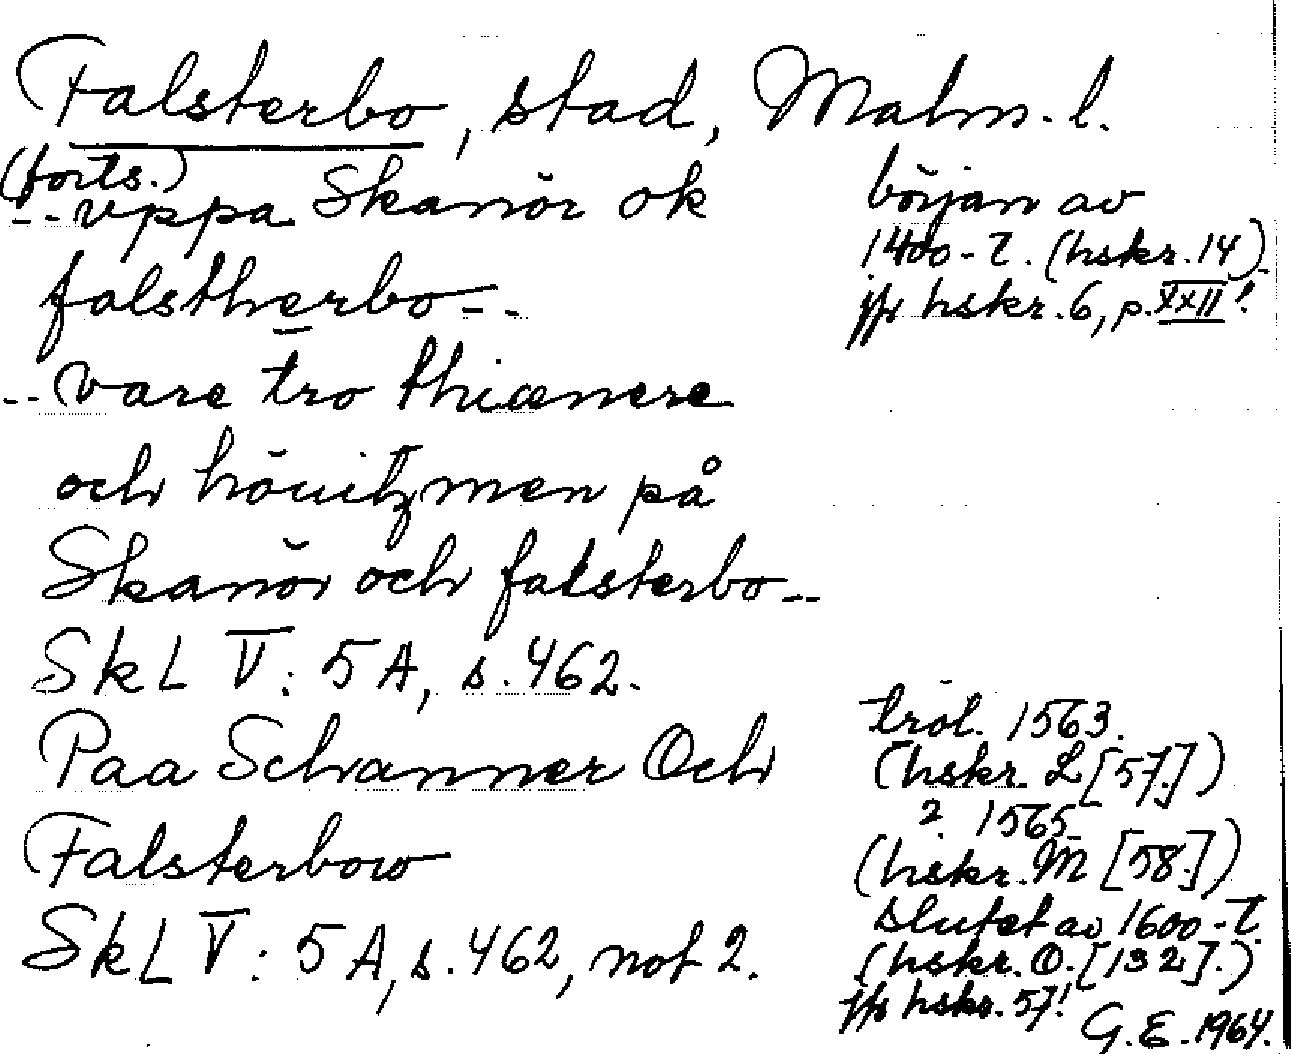 Falsterbo, stad, Malm. l.
(forts.)
--vppa Skanör ok
falstherbo--
början av
1400-t. (hskr. 14)
jfr hskr. 6, p. XXII!
--vare tro thiænere
och höuitzmen på
Skanör och falsterbo--
SkL V: 5 A, s. 462.
Paa Schanner Och
Falsterbow
SkL V: 5 A, s. 462, not 2.
trol. 1563.
(hskr. L [57.])
2. 1565
(hskr. M [58.])
slutet av 1600-t.
(hskr. O. [132].)
jfr hskr. 57!
G. E. 1964.